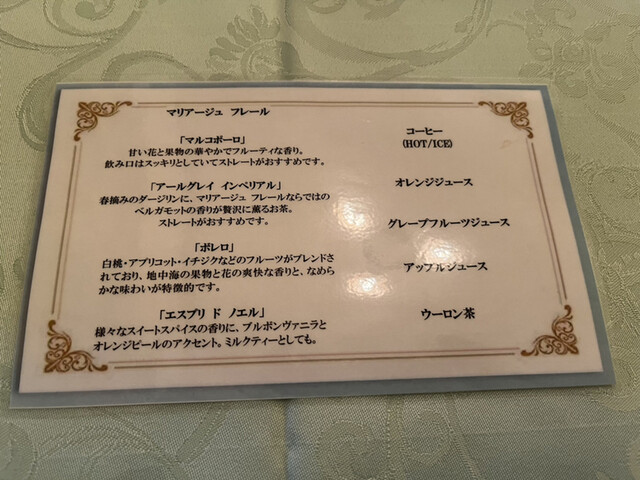 マリアージュ フレール
「マルコポーロ」
甘い花と果物の華やかでフルーティな香り。
飲み口はスッキリとしていてストレートがおすすめです。
「アールグレイ インペリアル」
春摘みのダージリンに、マリアージュ フレールならではの
ベルガモットの香りが贅沢に薫るお茶。
ストレートがおすすめです。
「ボレロ」
白桃・アプリコット・イチジクなどのフルーツがブレンドさ
れており、地中海の果物と花の爽快な香りと、なめら
かな味わいが特徴的です。
「エスプリ ド ノエル」
様々なスイートスパイスの香りに、ブルボンヴァニラと
オレンジピールのアクセント。ミルクティーとしても。
コーヒー
(HOT/ICE)
オレンジジュース
グレープフルーツジュース
アップルジュース
ウーロン茶